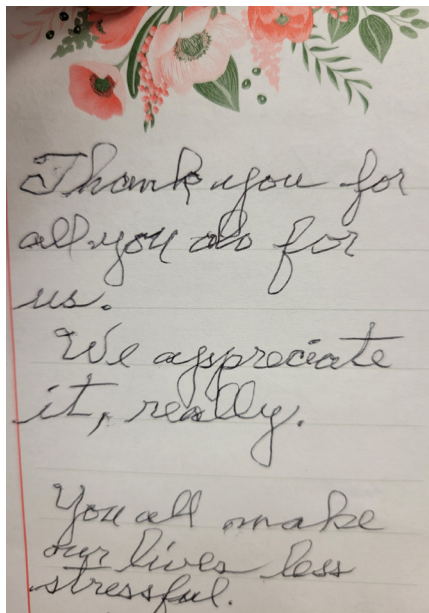 Thank you for
all you do for
us.
We appreciate
it, really.
You all make
our lives less
stressful.